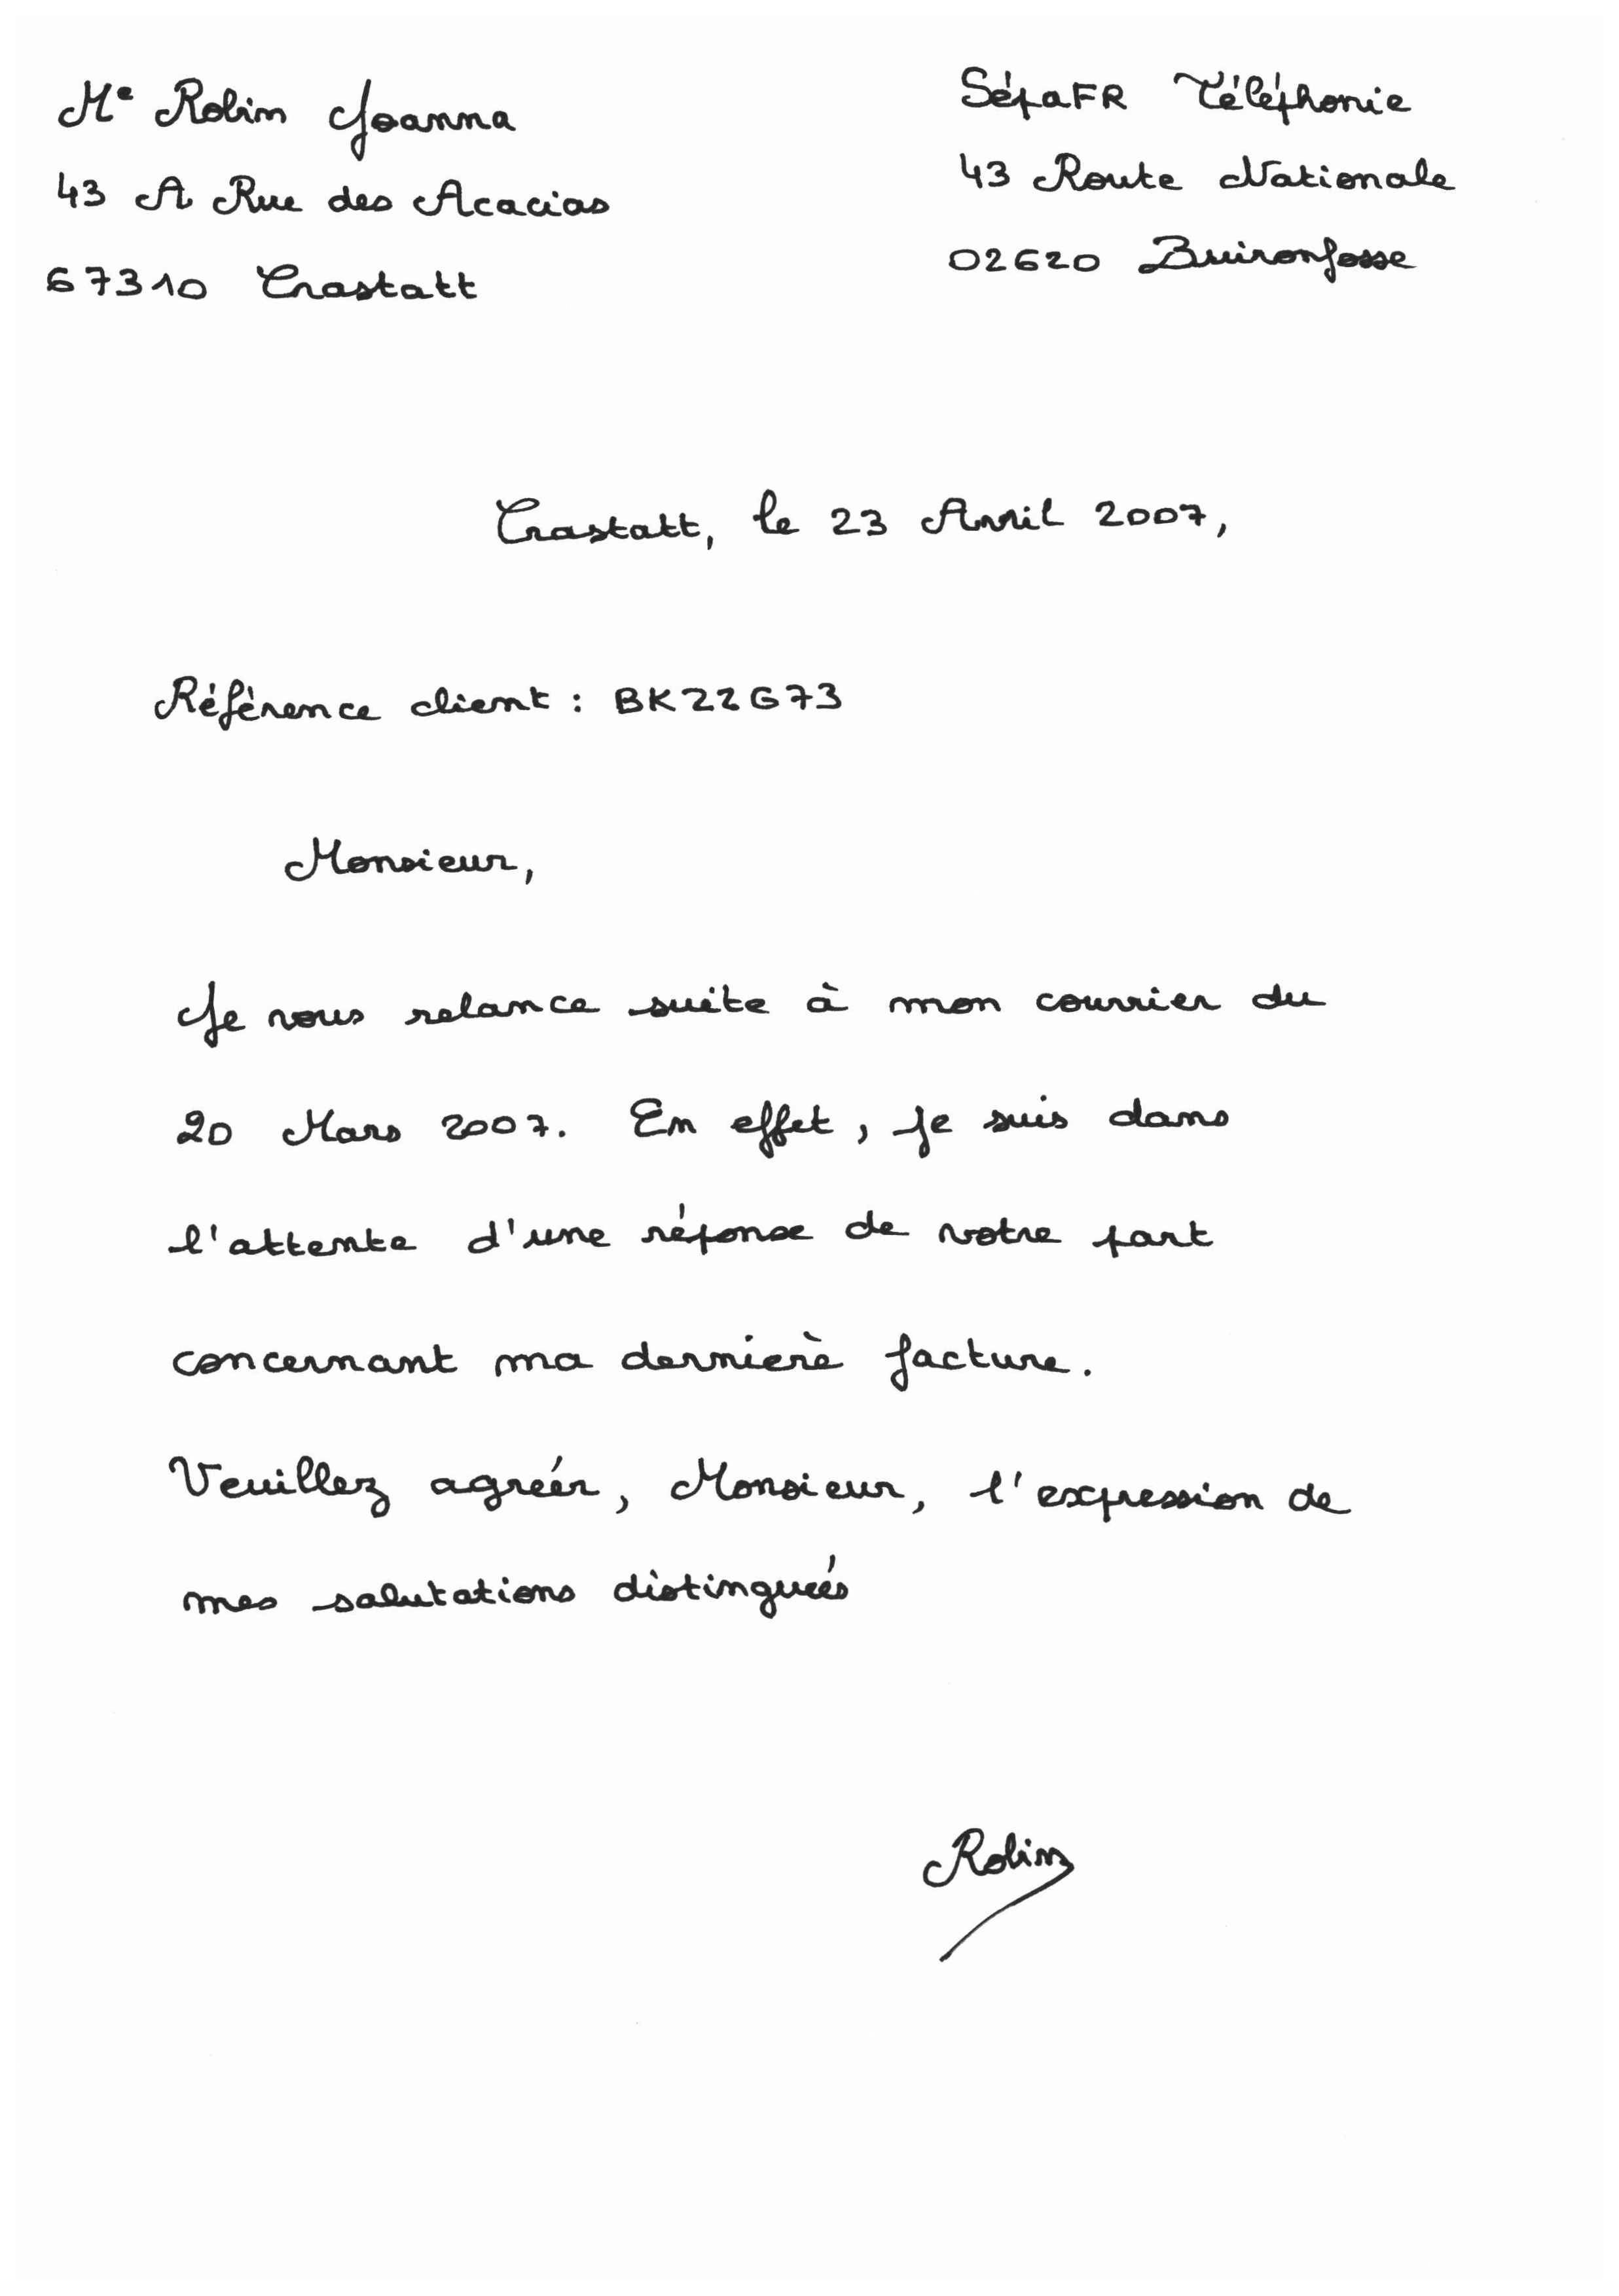 Me Robin Joanna
43 A Rue des Acacias
67310 Crastatt
SépaFR Téléphonie
43 Route Nationale
02620 Buironfosse
Crastatt, le 23 Avril 2007,
Référence client : BK22G73
Monsieur,
Je vous relance suite à mon courrier du
20 Mars 2007. En effet, je suis dans
l'attente d'une réponse de votre part
concernant ma dernière facture.
Veuillez agréer, Monsieur, l'expression de
mes salutations distinguées
Robin